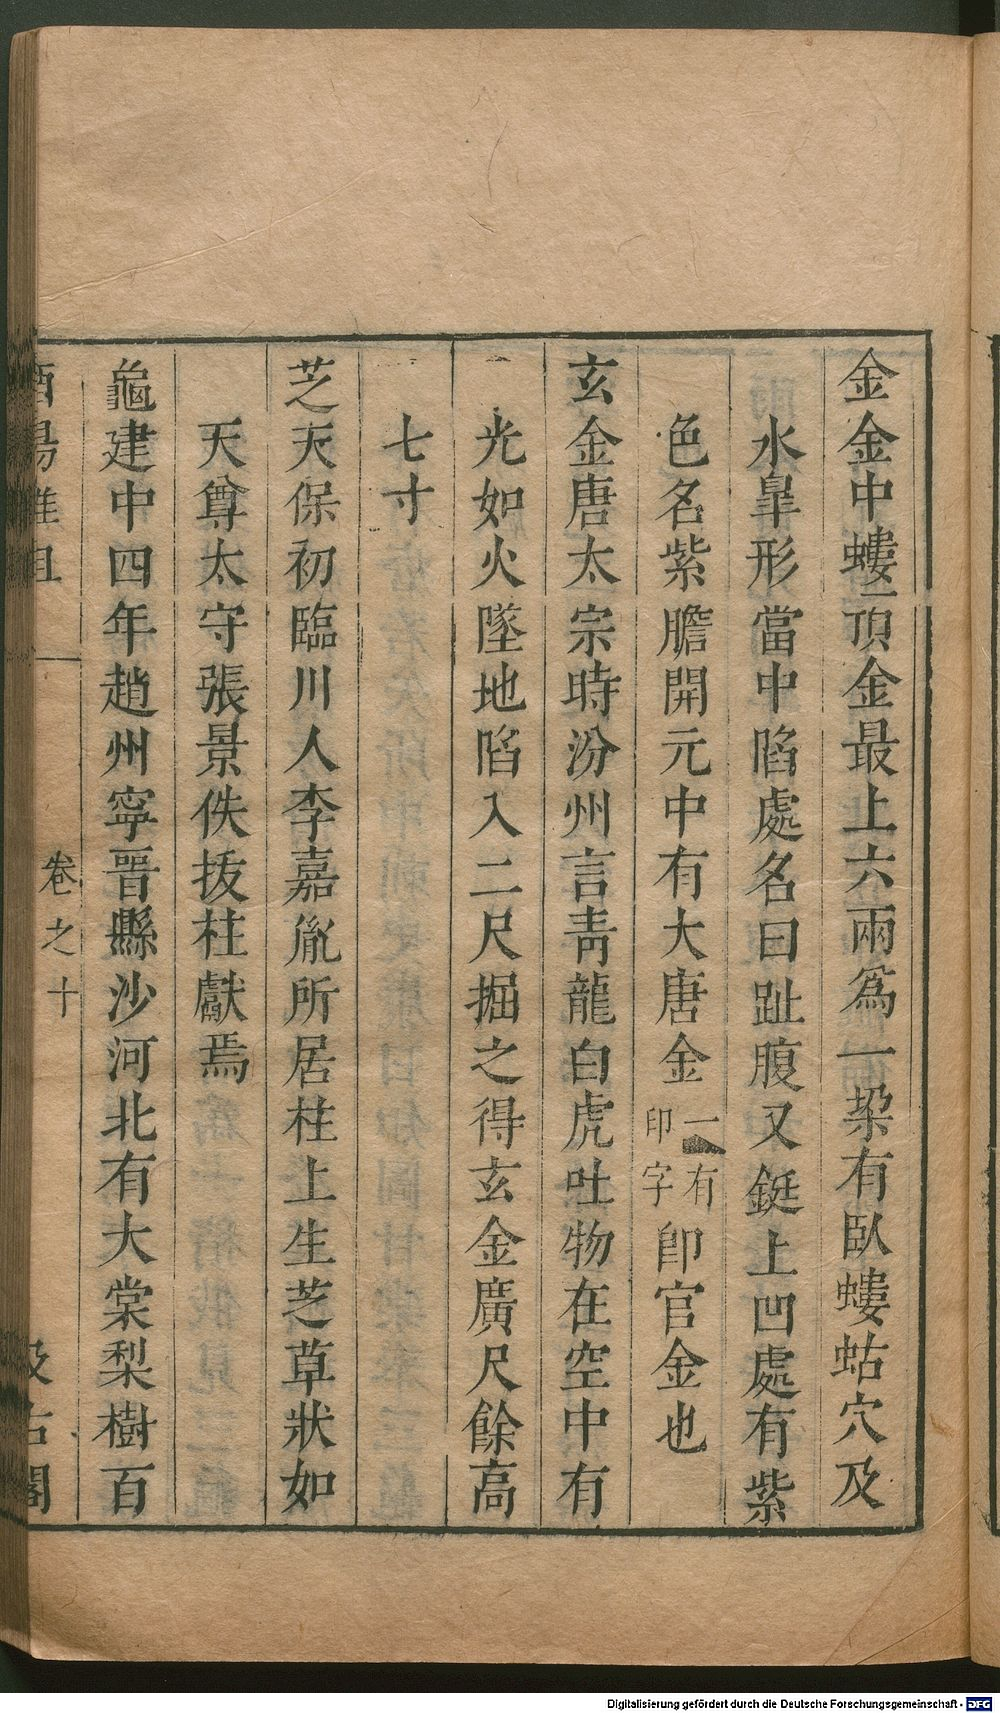 金金中螻頂金最上六兩爲一㮆有臥螻蛄穴及
水臯形當中陷處名曰趾腹又鋌上凹處有紫
色名紫膽開元中有大唐金一有印字卽官金也
玄金唐太宗時汾州言靑龍白虎吐物在空中有
光如火墜地陷入二尺掘之得玄金廣尺餘高
七寸
芝天保初臨川人李嘉胤所居柱上生芝草狀如
天尊太守張景佚拔柱獻焉
龜建中四年趙州寧晉縣沙河北有大棠梨樹百
酉陽雜俎 卷之十 汲古閣
Digitalisierung gefördert durch die Deutsche Forschungsgemeinschaft - DFG